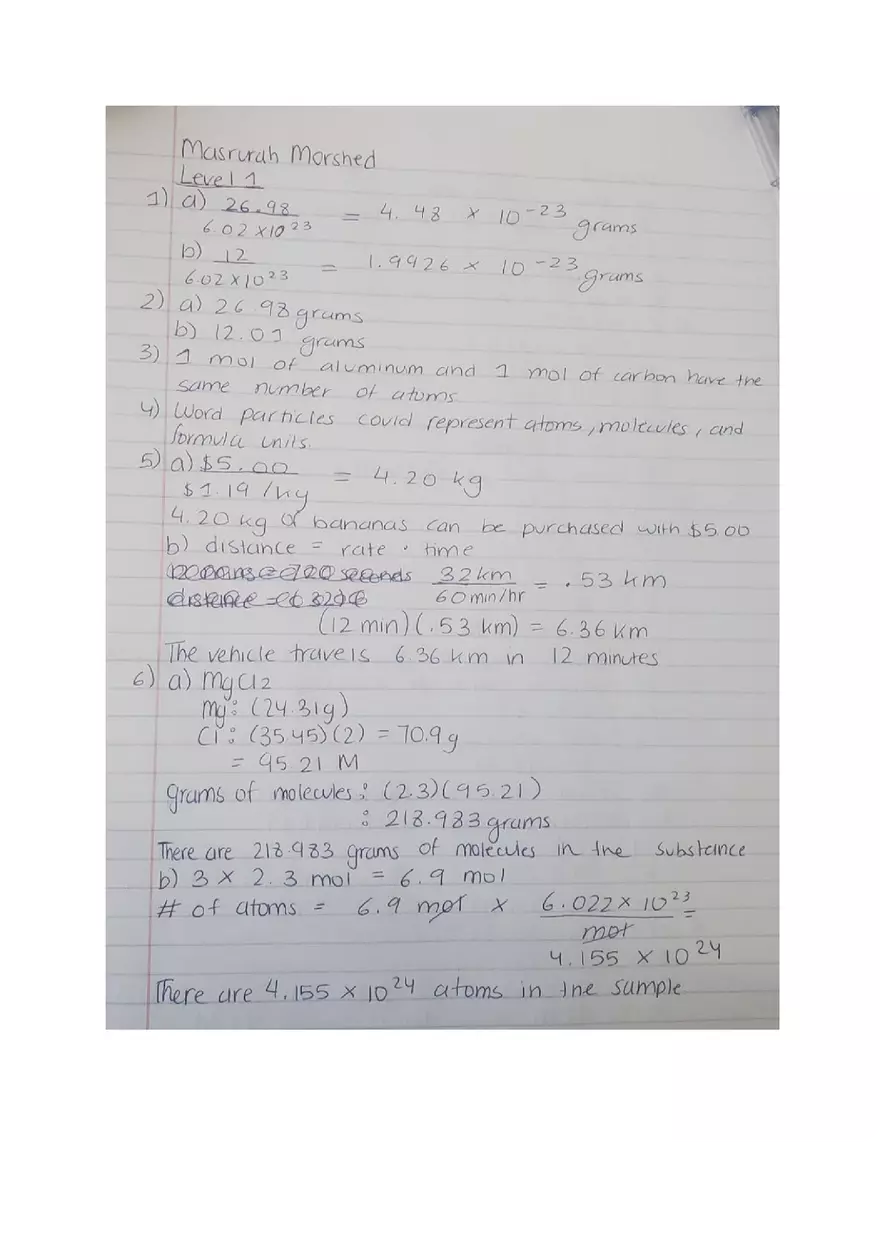 Masrurah Morshed
Level 1
1) a) 26.98 / 6.02 x10^23 = 4.48 x 10^-23 grams
b) 12 / 6.02 x 10^23 = 1.9926 x 10^-23 grams
2) a) 26.98 grams
b) 12.01 grams
3) 1 mol of aluminum and 1 mol of carbon have the
same number of atoms
4) Word particles could represent atoms, molecules, and
formula units.
5) a) $5.00 / $1.19 /kg = 4.20 kg
4.20 kg of bananas can be purchased with $5.00
b) distance = rate · time
32 km / 60 min/hr = .53 km
(12 min)(.53 km) = 6.36 km
The vehicle travels 6.36 km in 12 minutes
6) a) MgCl2
Mg: (24.31g)
Cl: (35.45)(2) = 70.9 g
= 95.21 M
grams of molecules: (2.3)(95.21)
: 218.983 grams
There are 218.983 grams of molecules in the substance
b) 3 x 2.3 mol = 6.9 mol
# of atoms = 6.9 mol x 6.022 x 10^23 / mol =
4.155 x 10^24
There are 4.155 x 10^24 atoms in the sample